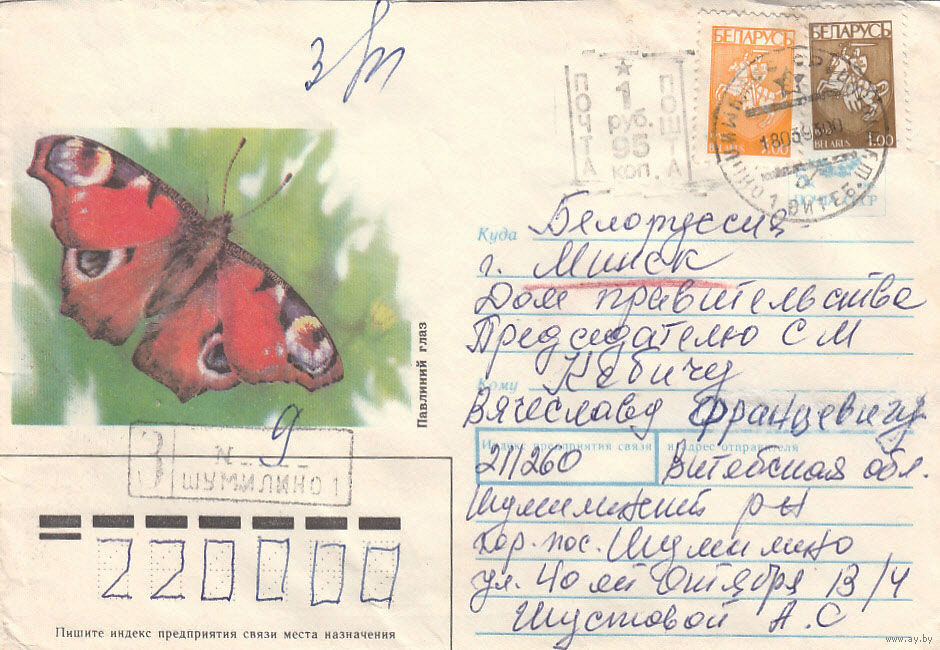 з
БЕЛАРУСЬ
1.00
BELARUS
БЕЛАРУСЬ
1.00
BELARUS
ПОЧТА
1
руб.
95
коп.
ПОШТА
ШУМИЛИНО 1 ВИТЕБ.
Куда Белоруссия
г. Минск
Дом правительства
Председателю С М
Кебичу
Кому
Вячеславу Францевичу
Индекс предприятия связи и адрес отправителя
211260 Витебская обл.
Шумилинский р н
гор. пос. Шумилино
ул. 40 лет Октября 13/4
Шустовой А. С
Павлиний глаз
9
З
N
ШУМИЛИНО 1
220000
Пишите индекс предприятия связи места назначения
www.ay.by